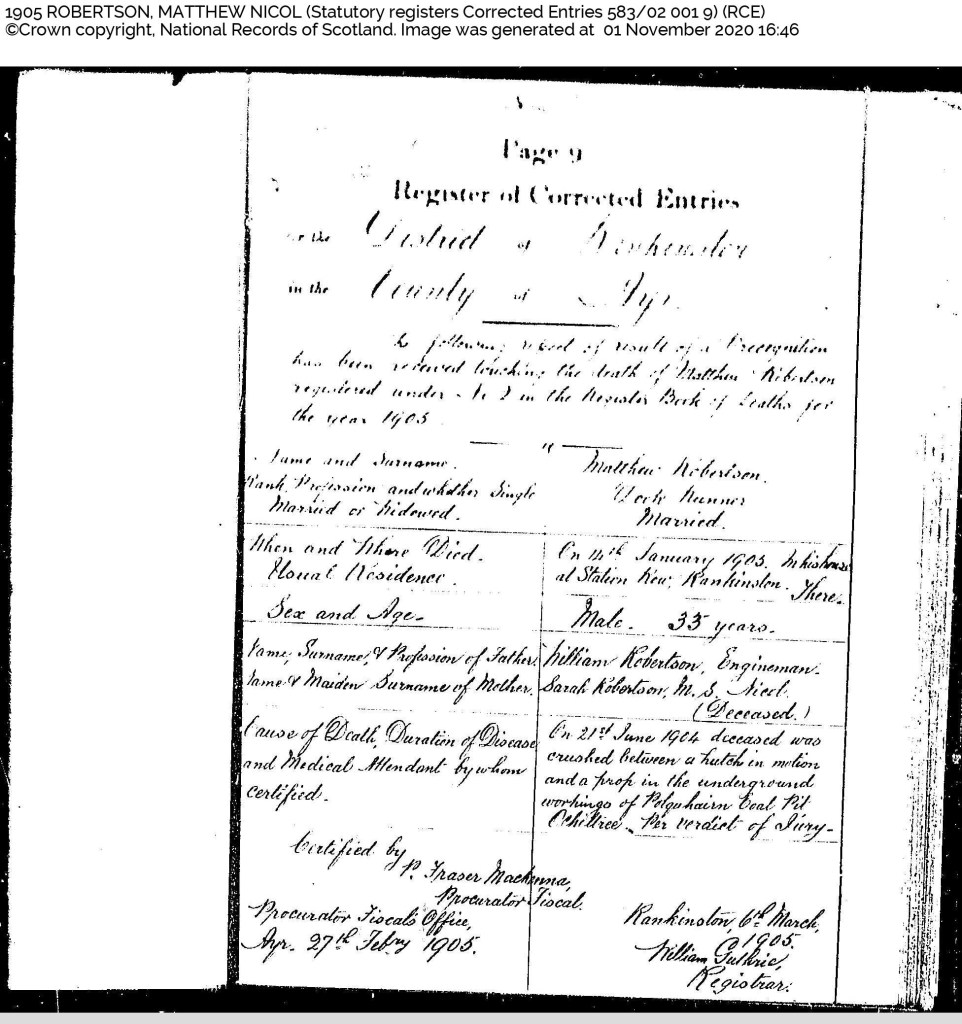 1905 ROBERTSON, MATTHEW NICOL (Statutory registers Corrected Entries 583/02 001 9) (RCE)
©Crown copyright, National Records of Scotland. Image was generated at 01 November 2020 16:46
Page 9
Register of Corrected Entries
for the District of Rankinston
in the County of Ayr.
The following report of result of a Precognition
has been received touching the death of Matthew Robertson
registered under No 2 in the Register Book of Deaths for
the year 1905
Name and Surname. Matthew Robertson.
Rank, Profession and whether Single Runner
Married or Widowed. Married.
When and Where Died. On 14th January 1905. In his house
Usual Residence. at Station Row, Rankinston. There.
Sex and Age. Male. 35 years.
Name, Surname, & Profession of Father. William Robertson, Engineman.
Name & Maiden Surname of Mother. Sarah Robertson, M.S. Nicol.
(Deceased.)
Cause of Death, Duration of Disease On 21st June 1904 deceased was
and Medical Attendant by whom crushed between a hutch in motion
certified. and a prop in the underground
workings of Polquhairn Coal Pit
Ochiltree. Per verdict of Jury-
Certified by
P. Fraser Mackenna,
Procurator Fiscal.
Procurator Fiscal's Office, Rankinston 6th March,
Ayr. 27th Febry 1905. 1905.
William Guthrie,
Registrar.